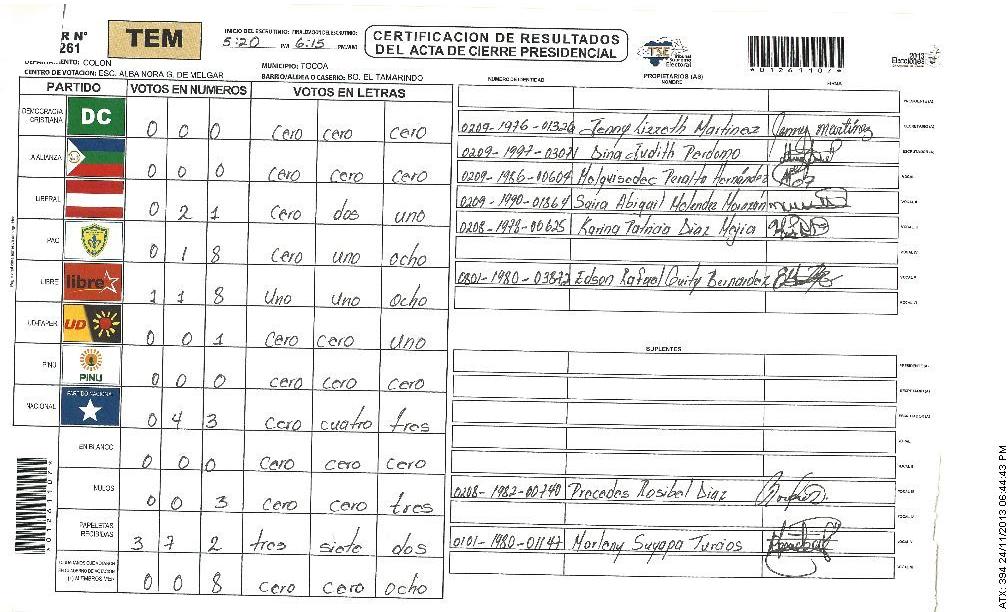 R N° 261
TEM
INICIO DEL ESCRUTINIO: FINALIZACION DEL ESCRUTINIO:
5:20 PM 6:15 PM/AM
CERTIFICACION DE RESULTADOS
DEL ACTA DE CIERRE PRESIDENCIAL
TSE Tribunal Supremo Electoral
*01261107*
2013
Elecciones
COLON
MUNICIPIO: TOCOA
CENTRO DE VOTACION: ESC. ALBA NORA G. DE MELGAR
BARRIO/ALDEA O CASERIO: BO. EL TAMARINDO
PARTIDO VOTOS EN NUMEROS VOTOS EN LETRAS
DEMOCRACIA CRISTIANA DC 0 0 0 Cero Cero Cero
ALIANZA 0 0 0 Cero Cero Cero
LIBERAL 0 2 1 Cero dos uno
PAC 0 1 8 Cero uno ocho
LIBRE libre 1 1 8 Uno Uno Ocho
UD-FAPER UD 0 0 1 Cero Cero Uno
PINU PINU 0 0 0 Cero Cero Cero
NACIONAL PARTIDO NACIONAL 0 4 3 Cero cuatro tres
EN BLANCO 0 0 0 Cero Cero Cero
NULOS 0 0 3 Cero Cero tres
PAPELETAS RECIBIDAS 3 7 2 tres siete dos
0 0 8 Cero Cero ocho
NUMERO DE IDENTIDAD PROPIETARIOS (AS) NOMBRE FIRMA
PRESIDENTE(A)
0209-1976-01326 Jenny Lizzeth Martinez Jenny Martínez SECRETARIO(A)
0209-1997-03071 Dina Judith Perdomo ESCRUTADOR(A)
0209-1986-00604 Melquisedec Peralta Hernández VOCAL I
0209-1990-01864 Saira Abigail Melendez VOCAL II
0208-1978-00625 Karina Patricia Diaz Mejia
0801-1980-03872 Edson Rafael Guity Bernardez VOCAL V
VOCAL VI
SUPLENTES
PRESIDENTE(A)
SECRETARIO(A)
ESCRUTADOR(A)
VOCAL I
VOCAL II
0208-1982-00740 Precedes Rosibel Diaz VOCAL III
0101-1980-01147 Marleny Suyapa Turcios VOCAL V
VOCAL VI
*01261107*
ATX: 394 24/11/2013 06:44:43 PM